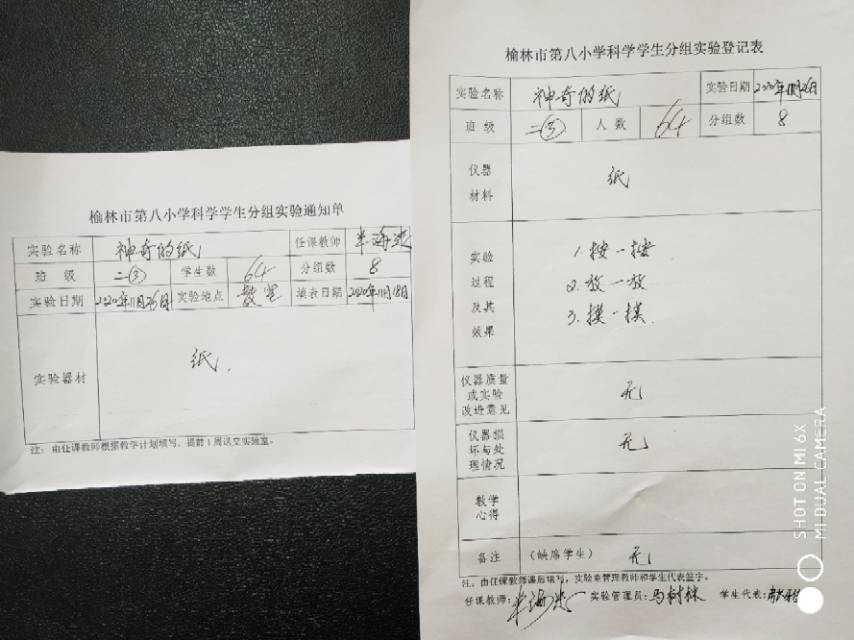 榆林市第八小学科学学生分组实验通知单
实验名称 神奇的纸 任课教师
班级 二③ 学生数 64 分组数 8
实验日期 2020年11月26日 实验地点 教室 填表日期 2020年11月18日
实验器材 纸.
注：由任课教师根据教学计划填写，提前1周送交实验室。
榆林市第八小学科学学生分组实验登记表
实验名称 神奇的纸 实验日期 2020年11月26日
班级 二③ 人数 64 分组数 8
仪器
材料
纸
实验
过程
及其
效果
1.按一按
2.放一放
3.摸一摸.
仪器质量
或实验
改进意见
无
仪器损
坏与处
理情况
无
教学
心得
备注 （缺席学生） 无
注：由任课教师课后填写，实验室管理教师和学生代表签字。
任课教师: 实验管理员:马树林 学生代表:
SHOT ON MI 6X
MI DUAL CAMERA